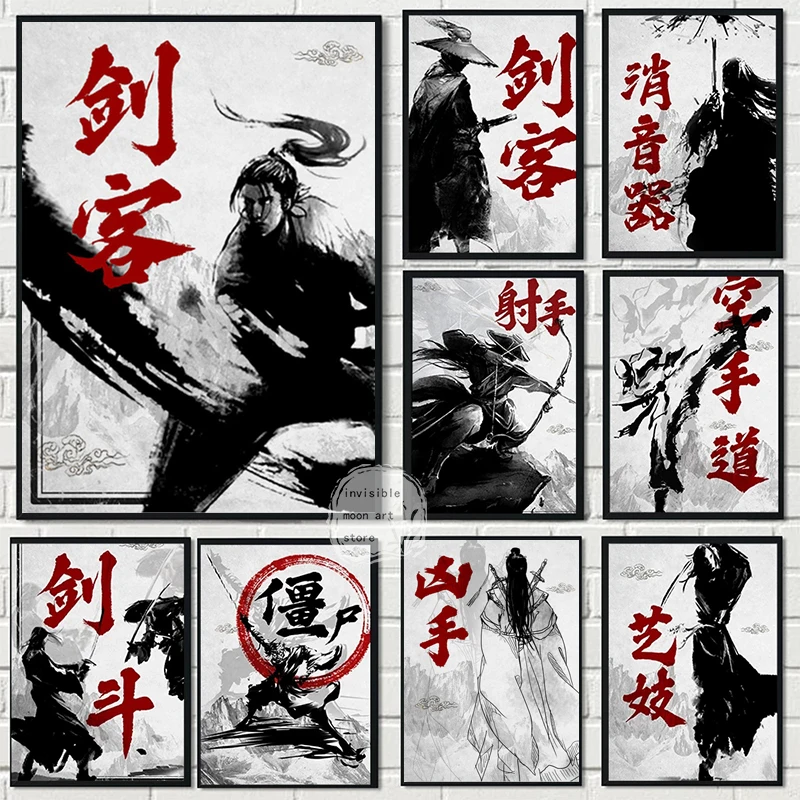 剑
客
剑
客
消
音
器
射手
空
手
道
剑
斗
僵尸
凶
手
艺
妓
invisible
moon art
store